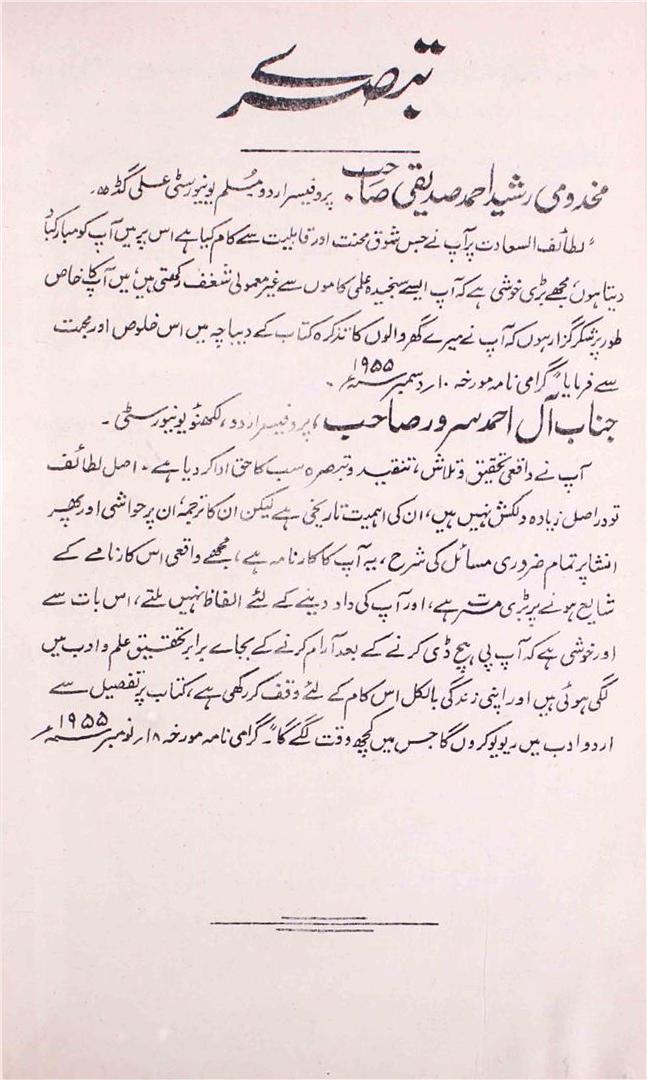 تبصرے
مخدومی رشید احمد صدیقی صاحب پروفیسر اردو مسلم یونیورسٹی علی گڈھ۔
"لطائف السعادت پر آپ نے جس شوق محنت اور قابلیت سے کام کیا ہے اس پر میں آپ کو مبارکباد
دیتا ہوں، مجھے بڑی خوشی ہے کہ آپ ایسے سنجیدہ علمی کاموں سے غیر معمولی شغف رکھتی ہیں، میں آپ کا خاص
طور پر شکر گزار ہوں کہ آپ نے میرے گھر والوں کا تذکرہ کتاب کے دیباچہ میں اس خلوص اور محبت
سے فرمایا" گرامی نامہ مورخہ ۱۰ر دسمبر ۱۹۵۵ء۔
جناب آل احمد سرور صاحب، پروفیسر اردو، لکھنؤ یونیورسٹی۔
آپ نے واقعی تحقیق و تلاش، تنقید و تبصرہ سب کا حق ادا کر دیا ہے۔ اصل لطائف
تو در اصل زیادہ دلکش نہیں ہیں، ان کی اہمیت تاریخی ہے لیکن ان کا ترجمہ، ان پر حواشی اور پھر
انشا پر تمام ضروری مسائل کی شرح، یہ آپ کا کارنامہ ہے، مجھے واقعی اس کارنامے کے
شایع ہونے پر بڑی مسرت ہے، اور آپ کی داد دینے کے لئے الفاظ نہیں ملتے، اس بات سے
اور خوشی ہے کہ آپ پی ہیچ ڈی کرنے کے بعد آرام کرنے کے بجاے برابر تحقیق علم و ادب میں
لگی ہوئی ہیں اور اپنی زندگی بالکل اس کام کے لئے وقف کر رکھی ہے، کتاب پر تفصیل سے
اردو ادب میں ریویو کروں گا جس میں کچھ وقت لگے گا"۔ گرامی نامہ مورخہ ۱۸ر نومبر ۱۹۵۵ء